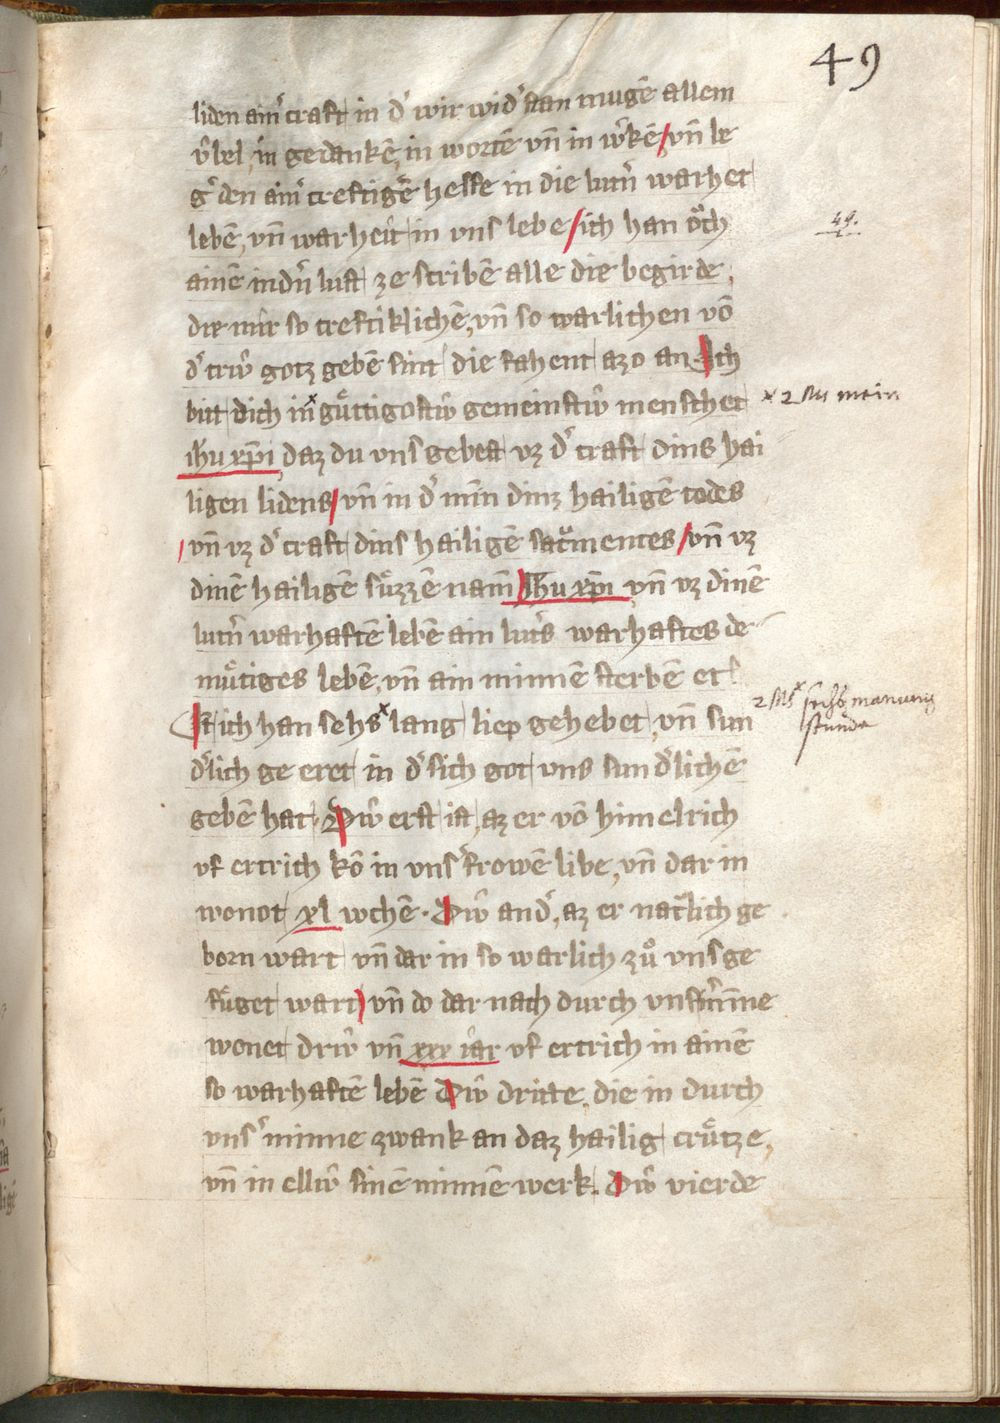 49
liden ain̾ craft in d̾ wir wid̾ stan mugē allem
v̂bel, in gedankē, in wortē vn̄ in w̾kē / vn̄ le
g̾ den ain̾ creftigē helfe in die lutr̄ warhet
lebē, vn̄ warheit in vns lebe / ich han ŏch
49.
ainē indn̄ lust ze scribē alle die begirde,
die mir so creftiklichē, vn̄ so warlichen vō
d̾ triv̂ gotz gebē sint die fahent azo an Ich
bitt dich in x gv̊ttigostiv̂ gemeinstiv̂ menschet
x 2 Ms mein
ih̄u xp̄i daz du vns gebest vz d̾ craft dins hai
ligen lidens / vn̄ in d̾ min̄ dinz hailigē todes
/ vn̄ vz d̾ craft dins hailigē sac̾mentes / vn̄ vz
dinē hailigē sv̊zzē nam̄ Jh̄u xp̄i vn̄ vz dinē
lutr̄ warhaftē lebē ain lut̾s warhaftes de
mv̊tiges lebē, vn̄ ain minnē sterbē et
ich han sehs x lang liep gehebet, vn̄ sun
2 Ms x sechs manung
stunde
d̾lich ge eret in d̾ sich got vns sun d̾lichē
gebē hat. Div̂ erst ist, az er vō himelrich
vf ertrich kō in vns̾ frowē libe, vn̄ dar in
wonot xl wchē. Div̂ and̾, az er nat̾lich ge
born wart vn̄ dar in so warlich zv̊ vns ge
fv̊get wart ) vn̄ do dar nach durch vns̾ min̄e
wonet driv̂ vn̄ xxx iar vf ertrich in ainē
so warhaftē lebē Div̂ dritte, die in durch
vns̾ minne zwank an daz hailig crv̊tze,
vn̄ in elliv̂ sinē minnē werk. Div̂ vierde